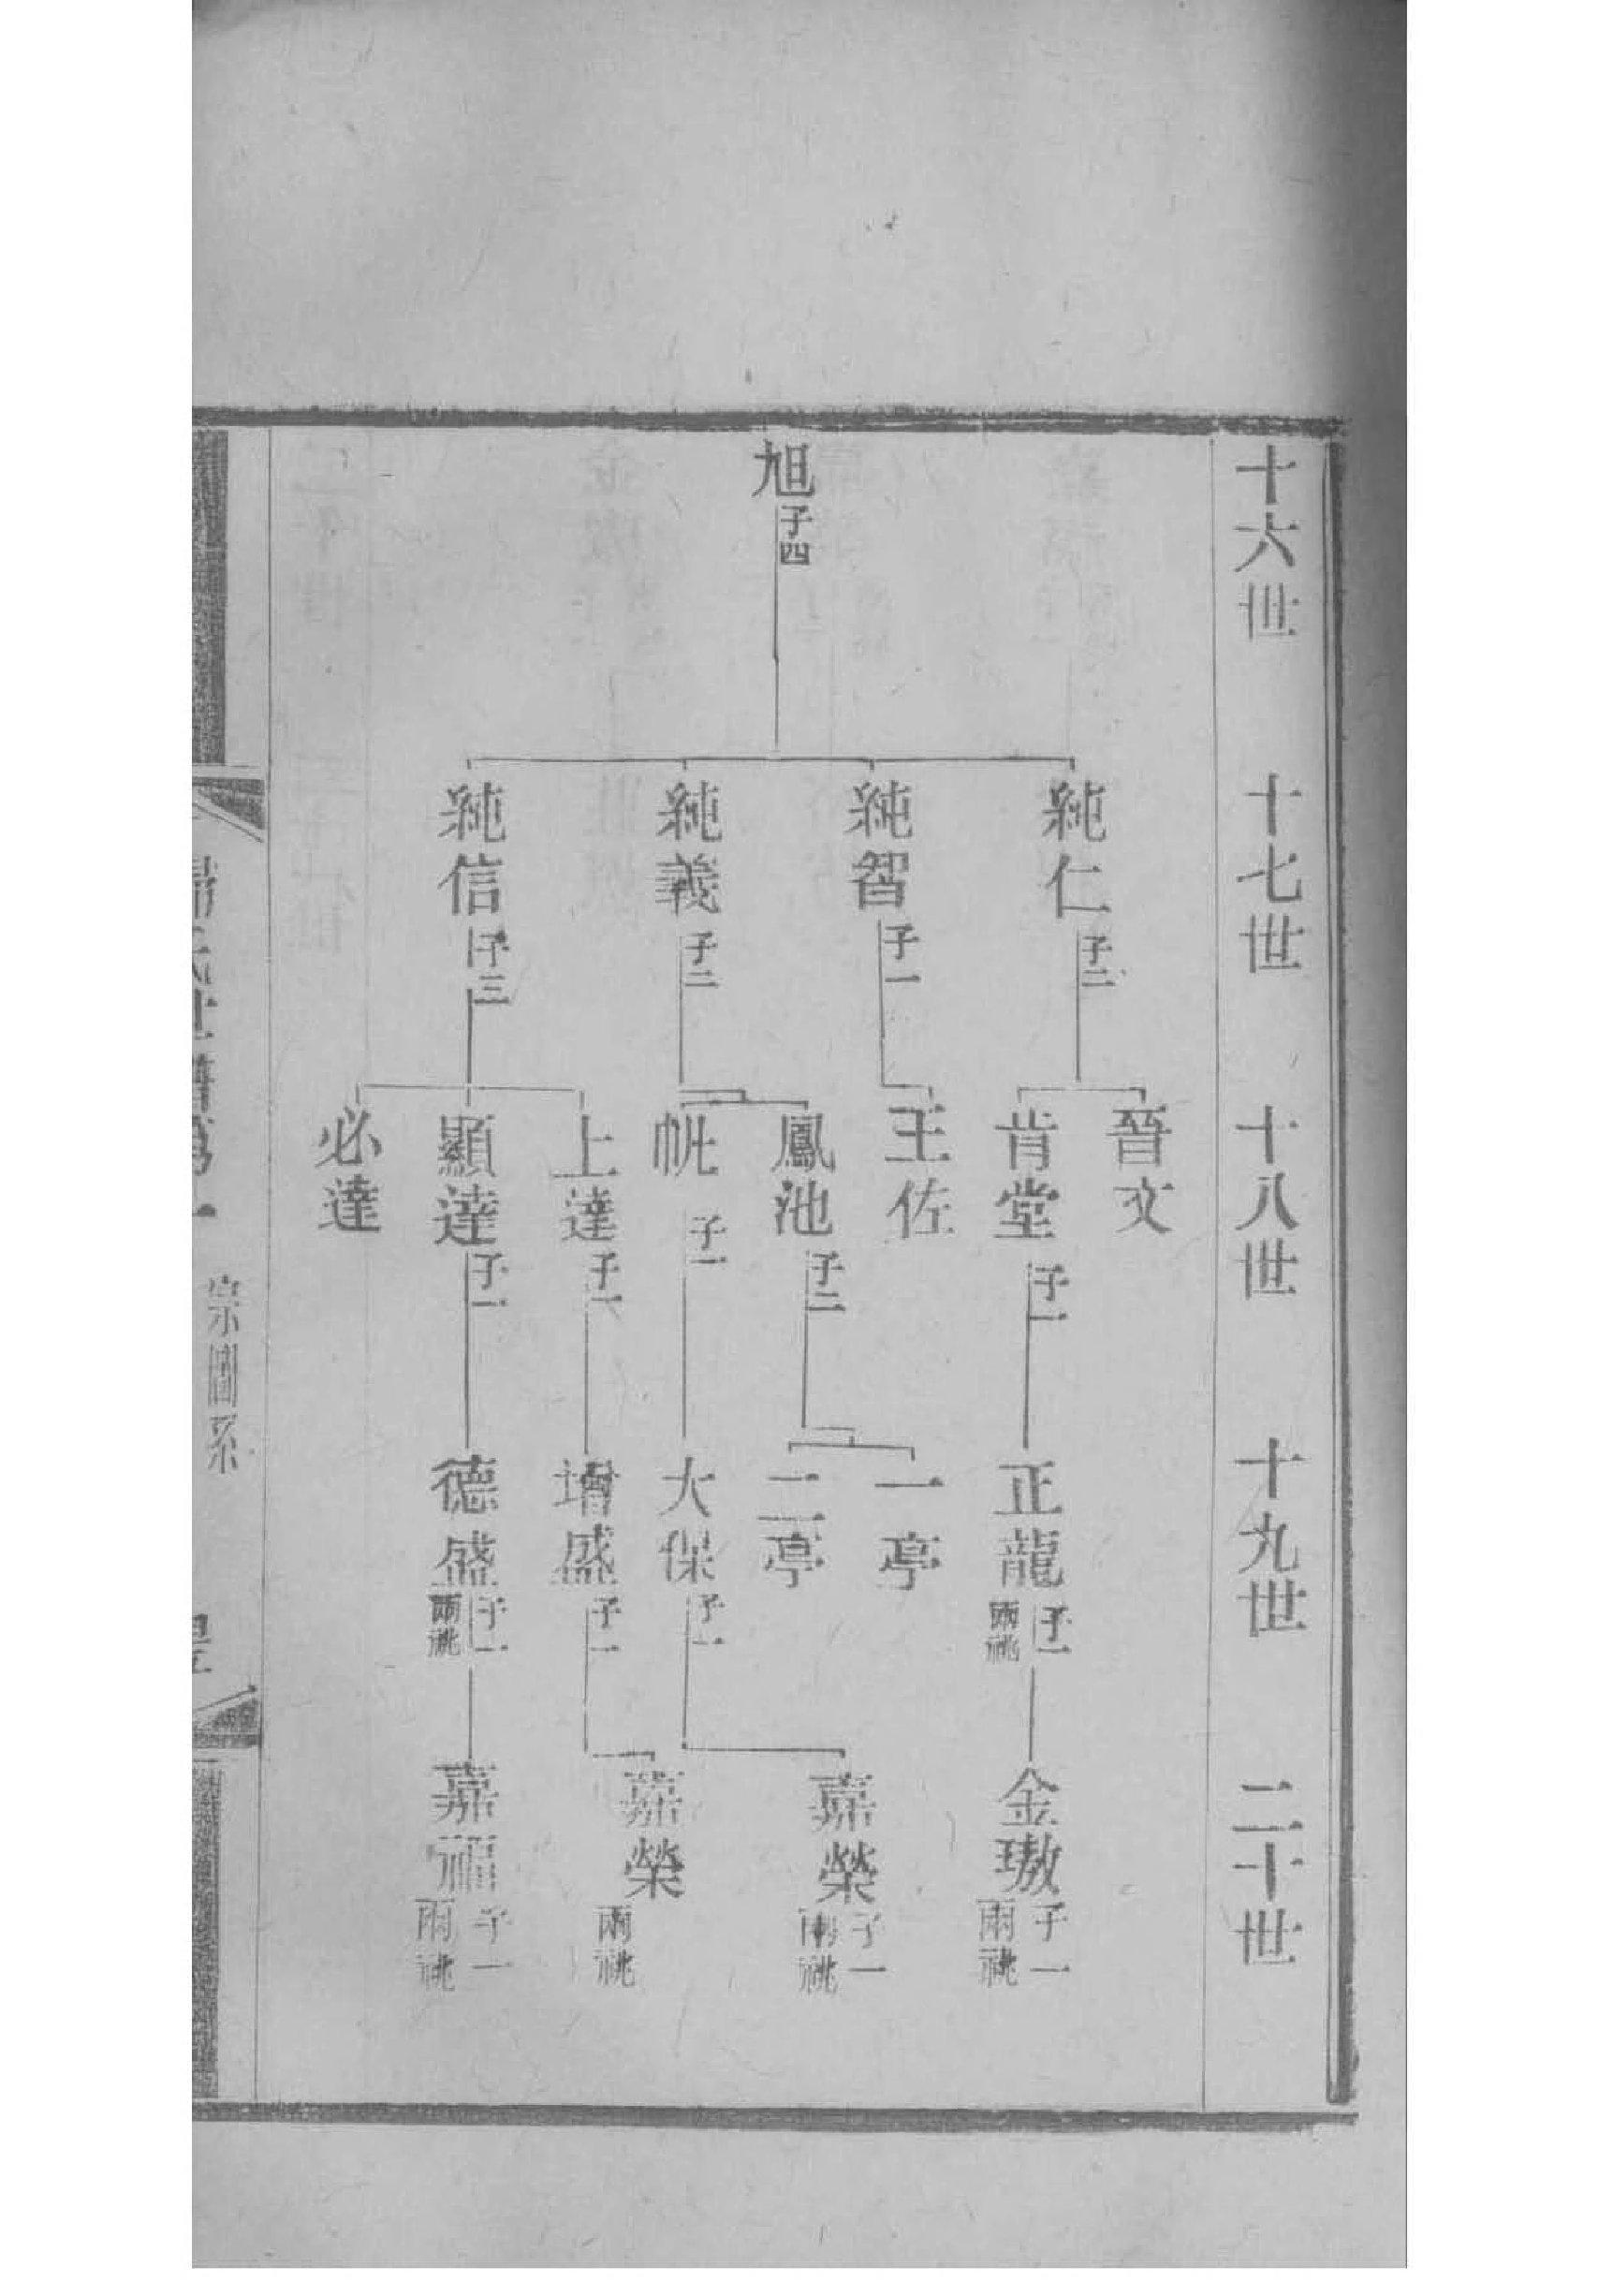 十六世
十七世
十八世
十九世
二十世
旭子四
純仁子二
純智子一
純義子二
純信子三
晉文
肯堂子一
王佐
鳳池子二
子一
上達子一
顯達子一
必達
正龍子一兩祧
一亭
二亭
大保子一
增盛子一
德盛子一兩祧
金璈子一兩祧
嘉榮子一兩祧
嘉榮兩祧
嘉福子一兩祧
宗圖系